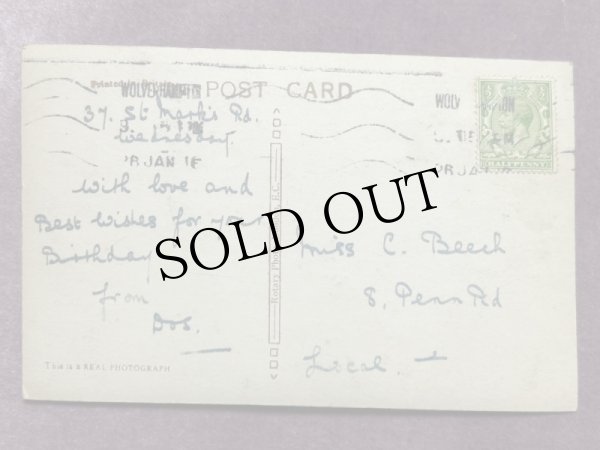 Printed in
POST CARD
WOLVERHAMPTON
37. St Mark's Rd.
Wednesday.
JAN 16
HALFPENNY
With love and
Best Wishes for your
Birthday
from
Dos.
Miss C. Beech
8, Penn Rd
Local.
Rotary Photo
E.C.
This is a REAL PHOTOGRAPH
SOLD OUT